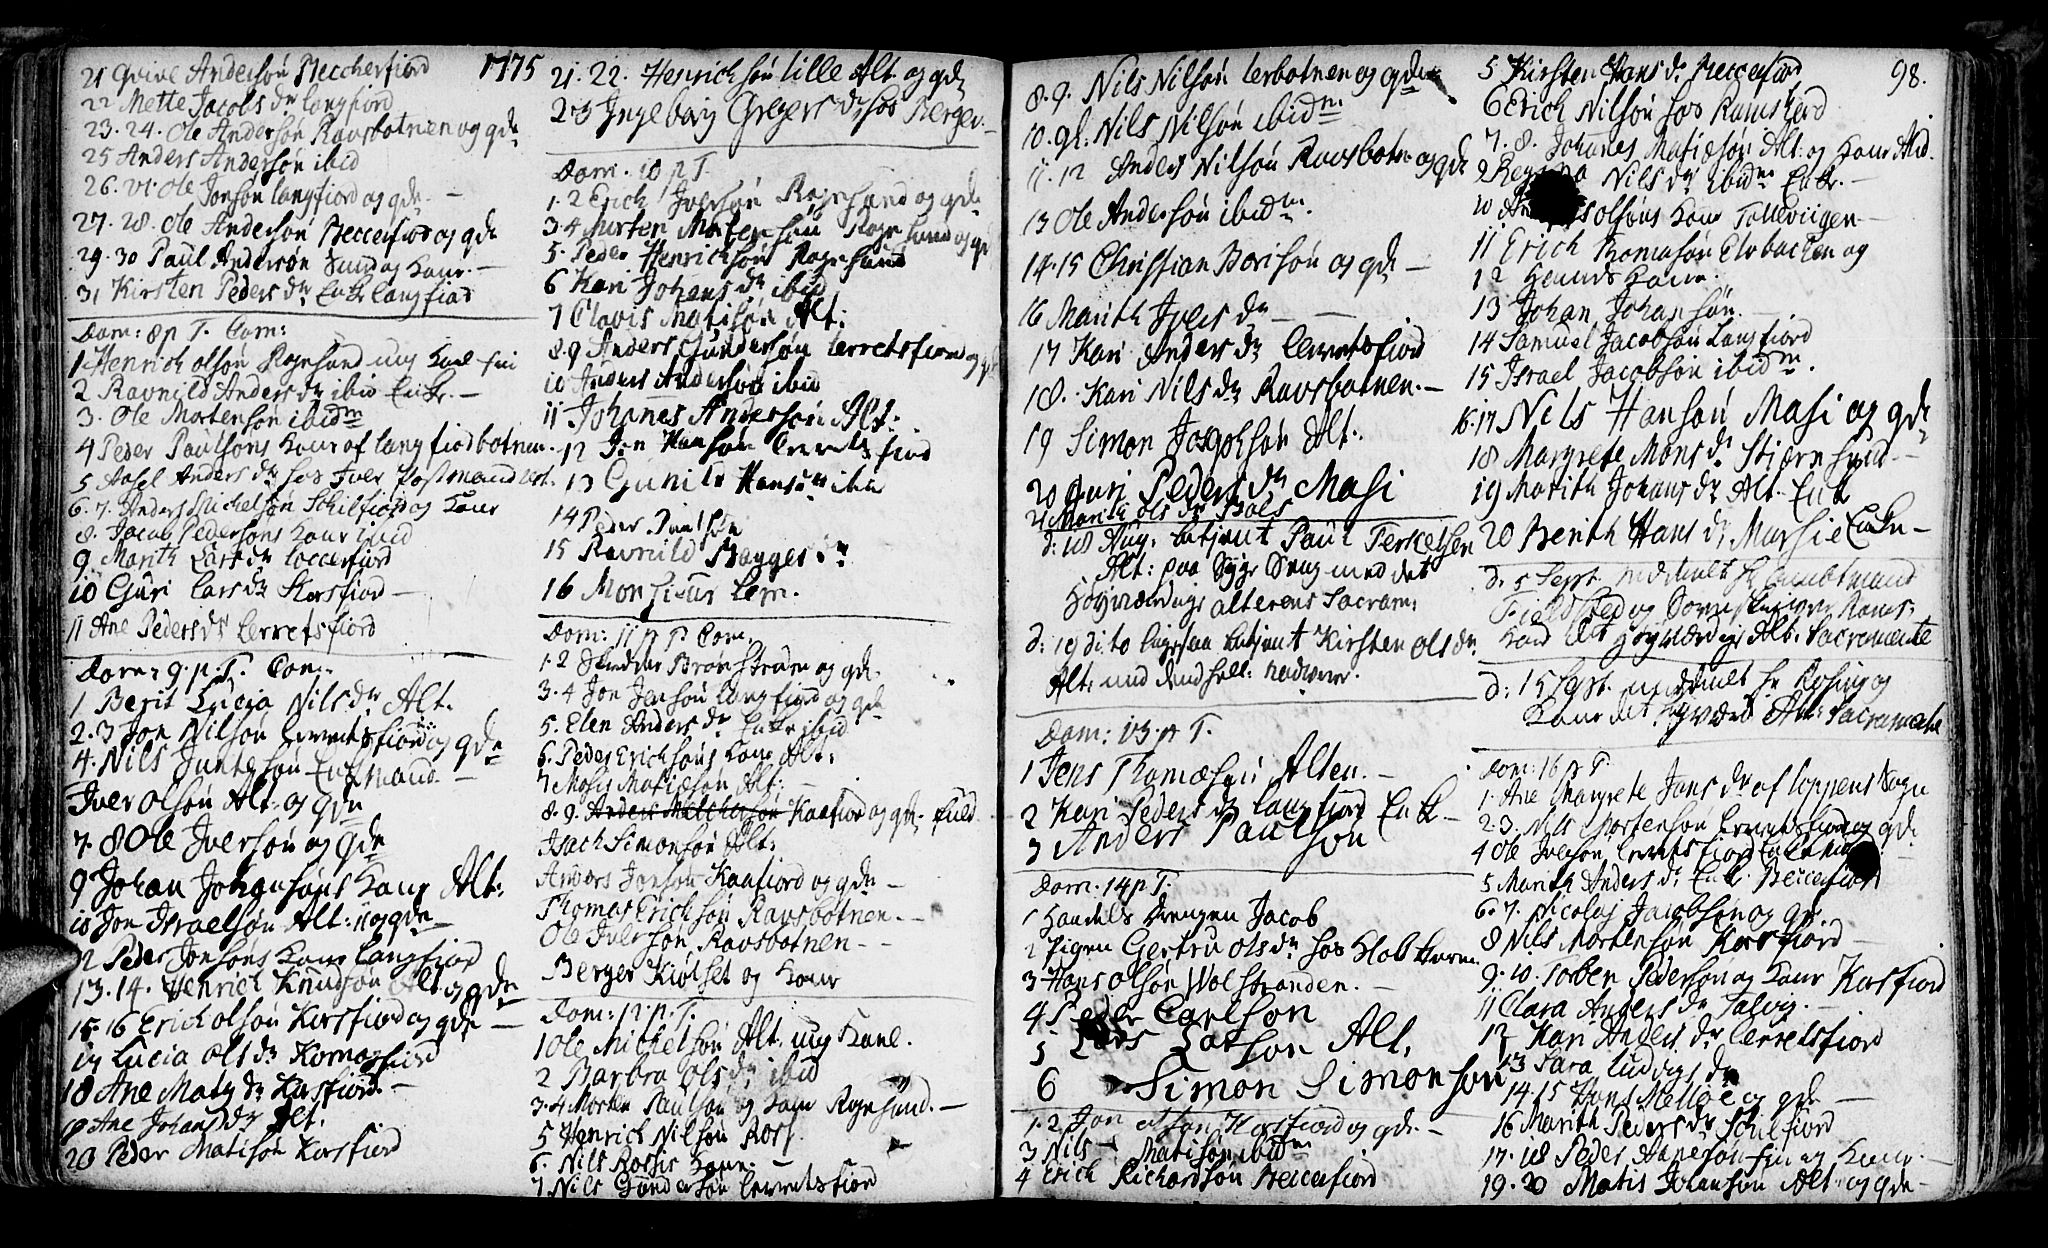 1775
21 Qvive Andersøn Beccherfiord
22 Mette Jacobs dr langfiord
23. 24. Ole Andersøn Ravsbotnen og qde
25 Anders Andersøn ibid
26. Ole Jonsøn langfiord og qde. —
27. 28. Ole Andersøn Beccerfiord og qde
29. 30 Paul Andersøn Sund og Kone. —
31 Kirsten Peders dr Enke langfiord
Dom: 8 p T. Com:
1. Henrich olsøn Rognsund ung Karl
2 Ravnild Anders dr ibid Enke. —
3. Ole Mortensøn ibidm
4 Peder Paulsøns Kone af langfiordbotnen.
5 Aasel Anders dr hos Iver Postmand
6. 7. Anders Michelsøn Schilfiord og Kone
8. Jacob Pedersøns Kone ibid
9. Marith Lars dr loccerfiord
10 Guri Lars dr Korsfiord —
11 Ane Peders dr Lerretsfiord
Dom: 9. p. T. Com.
1 Berit Lucia Nils dr Alt.
2. 3 Jon Nilsøn Lerretsfiord og qde
4. Nils Juntesøn Enkemand. —
Iver olsøn Alt: og qde
7. 8 Ole Iversøn og qde
9 Johan Johansøns Kone Alt:
10 Jon Israelsøn Alt: 11 og qde —
12 Peder Jonsøns Kone Langfiord
13. 14. Henrich Knudsøn Alt og qde
15. 16 Erich olsøn Korsfiord og qde —
17 Lucia ols dr Komagfiord
18 Ane Mats dr Korsfiord. —
19 Ane Johans dr Alt.
20 Peder Matisøn Korsfiord
21. 22. Henrichsøn lille Alt. og qde
23 Ingeborg Gregers dr hos Berger. —
Dom. 10 p T.
1. 2 Erich Iversøn Rognsund og qde
3. 4 Morten Mortensøn Rognsund og qde
5. Peder Henrichsøn Rognsund
6 Kari Johans dr ibid
7 Clavis Matisøn Alt:
8. 9 Anders Gundersøn lerretsfiord og qde
10 Anders Andersøn ibid
11 Johanes Andersøn Alt:
12 Jon Hansøn Lerretsfiord
13 Gunild Hans dr ibid
14 Peder Paulsøn
15 Ravnild Bagges dr
16 Monsieur Lem.
Dom: 11 p T Com.
1. 2 Brønstrøm og qde.
3. 4 Jon Jensøn langfiord og qde
5. Elen Anders dr Enke ibid
6. Peder Erichsøns Kone Alt:
7 Mosis Matisøn Alt: —
8. 9. Anders Melchersøn Kaafiord og qde
Isach Simonsøn Alt:
Anders Jonsøn Kaafiord og qde —
Thomas Erichsøn Ravsbotnen. —
Ole Iversøn Ravsbotnen —
Berger Kiølset og Kone
Dom: 12. p. T.
1 Ole Michelsøn Alt. ung Karl.
2 Barbra Ols dr ibid
3. 4 Morten Paulsøn og Kone Rognsund. —
5 Henrich Nilsøn Ross.
6. Nils Rossis Kone.
7 Nils Gundersøn Lerretsfiord
8. 9. Nils Nilsøn Lerbotnen og qde
10. gl. Nils Nilsøn ibidm
11. 12 Anders Nilsøn Ravsbotn og qde
13 Ole Andersøn ibidm.
14. 15 Christian Borisøn og qde —
16 Marith Ivers dr —
17 Kari Anders dr Lerretsfiord
18. Kari Nils dr Ravsbotnen. —
19 Simon Josephsøn Alt.
20 Guri Peders dr Masi
21 Marith Ols dr
d: 18 Aug. betjent Paul Terkelsen
Alt: paa Syge Seng med det
Høyværdige alterens Sacram:
d: 19 dito ligesaa betjent Kirsten ols dr
Alt: med dend hell: nadvere.
Dom: 13. p T.
1 Jens Thomæsøn Alten. —
2 Kari Peders dr langfiord Enke —
3 Anders Paulsøn
Dom. 14 p T.
1 Handels Drengen Jacob
2 Pigen Gertru ols dr hos
3 Hans olsøn Wolstranden. —
4 Peder Carlson
5 Lars Larson Alt.
6 Simon Simonson
1. 2 Jon olsøn Korsfiord og qde. —
3 Nils Matisøn ibidm
4 Erich Richardsøn Beccerfiord
98.
5 Kirsten Hans dr Beccerfiord
6 Erich Nilsøn hos Ramskierd
7. 8. Johanes Matisøn Alt: og Kone Ibid.
9 Regina Nils dr ibidm Enke. —
10 olsøns Kone Tallviigen —
11 Erich Thomasøn Elvbacken og
12 Kone.
13 Johan Johansøn. —
14 Samuel Jacobsøn Langfiord
15 Israel Jacobsøn ibidm.
16. 17 Nils Hansøn Masi og qde
18 Margrete Mons dr Stiernsund —
19 Marith Johans dr Alt. Enke
20 Berith Hans dr Marsie Enke —
d: 5 Sept. Amtmand
Fieldsted og Sorenskriver
det Høyværdige Alt: Sacramente
d: 15 Sept. Hr Rosing og
Kone det Høyværd Alt: Sacramente
Dom: 16 p T.
1. Ane Margrete Jons dr af Loppens Sogn
2. 3. Nils Mortensøn Lerretsfiord og qde
4 Ole Iversøn Lerretsfiord
5 Marith Anders dr Enke Beccerfiord
6. 7. Nicolaj Jacobsøn og qde.
8 Nils Mortensøn Korsfiord —
9. 10. Torben Pedersøn og Kone Korsfiord
11 Clara Anders dr Talvig. —
12 Kari Anders dr Lerretsfiord
13 Sara Ludvigs dr
14. 15 Hans Mellge og qde —
16 Marith Peders dr Schilfiord
17. 18 Peder og Kone. —
19. 20 Matis Johansøn Alt. og qde —